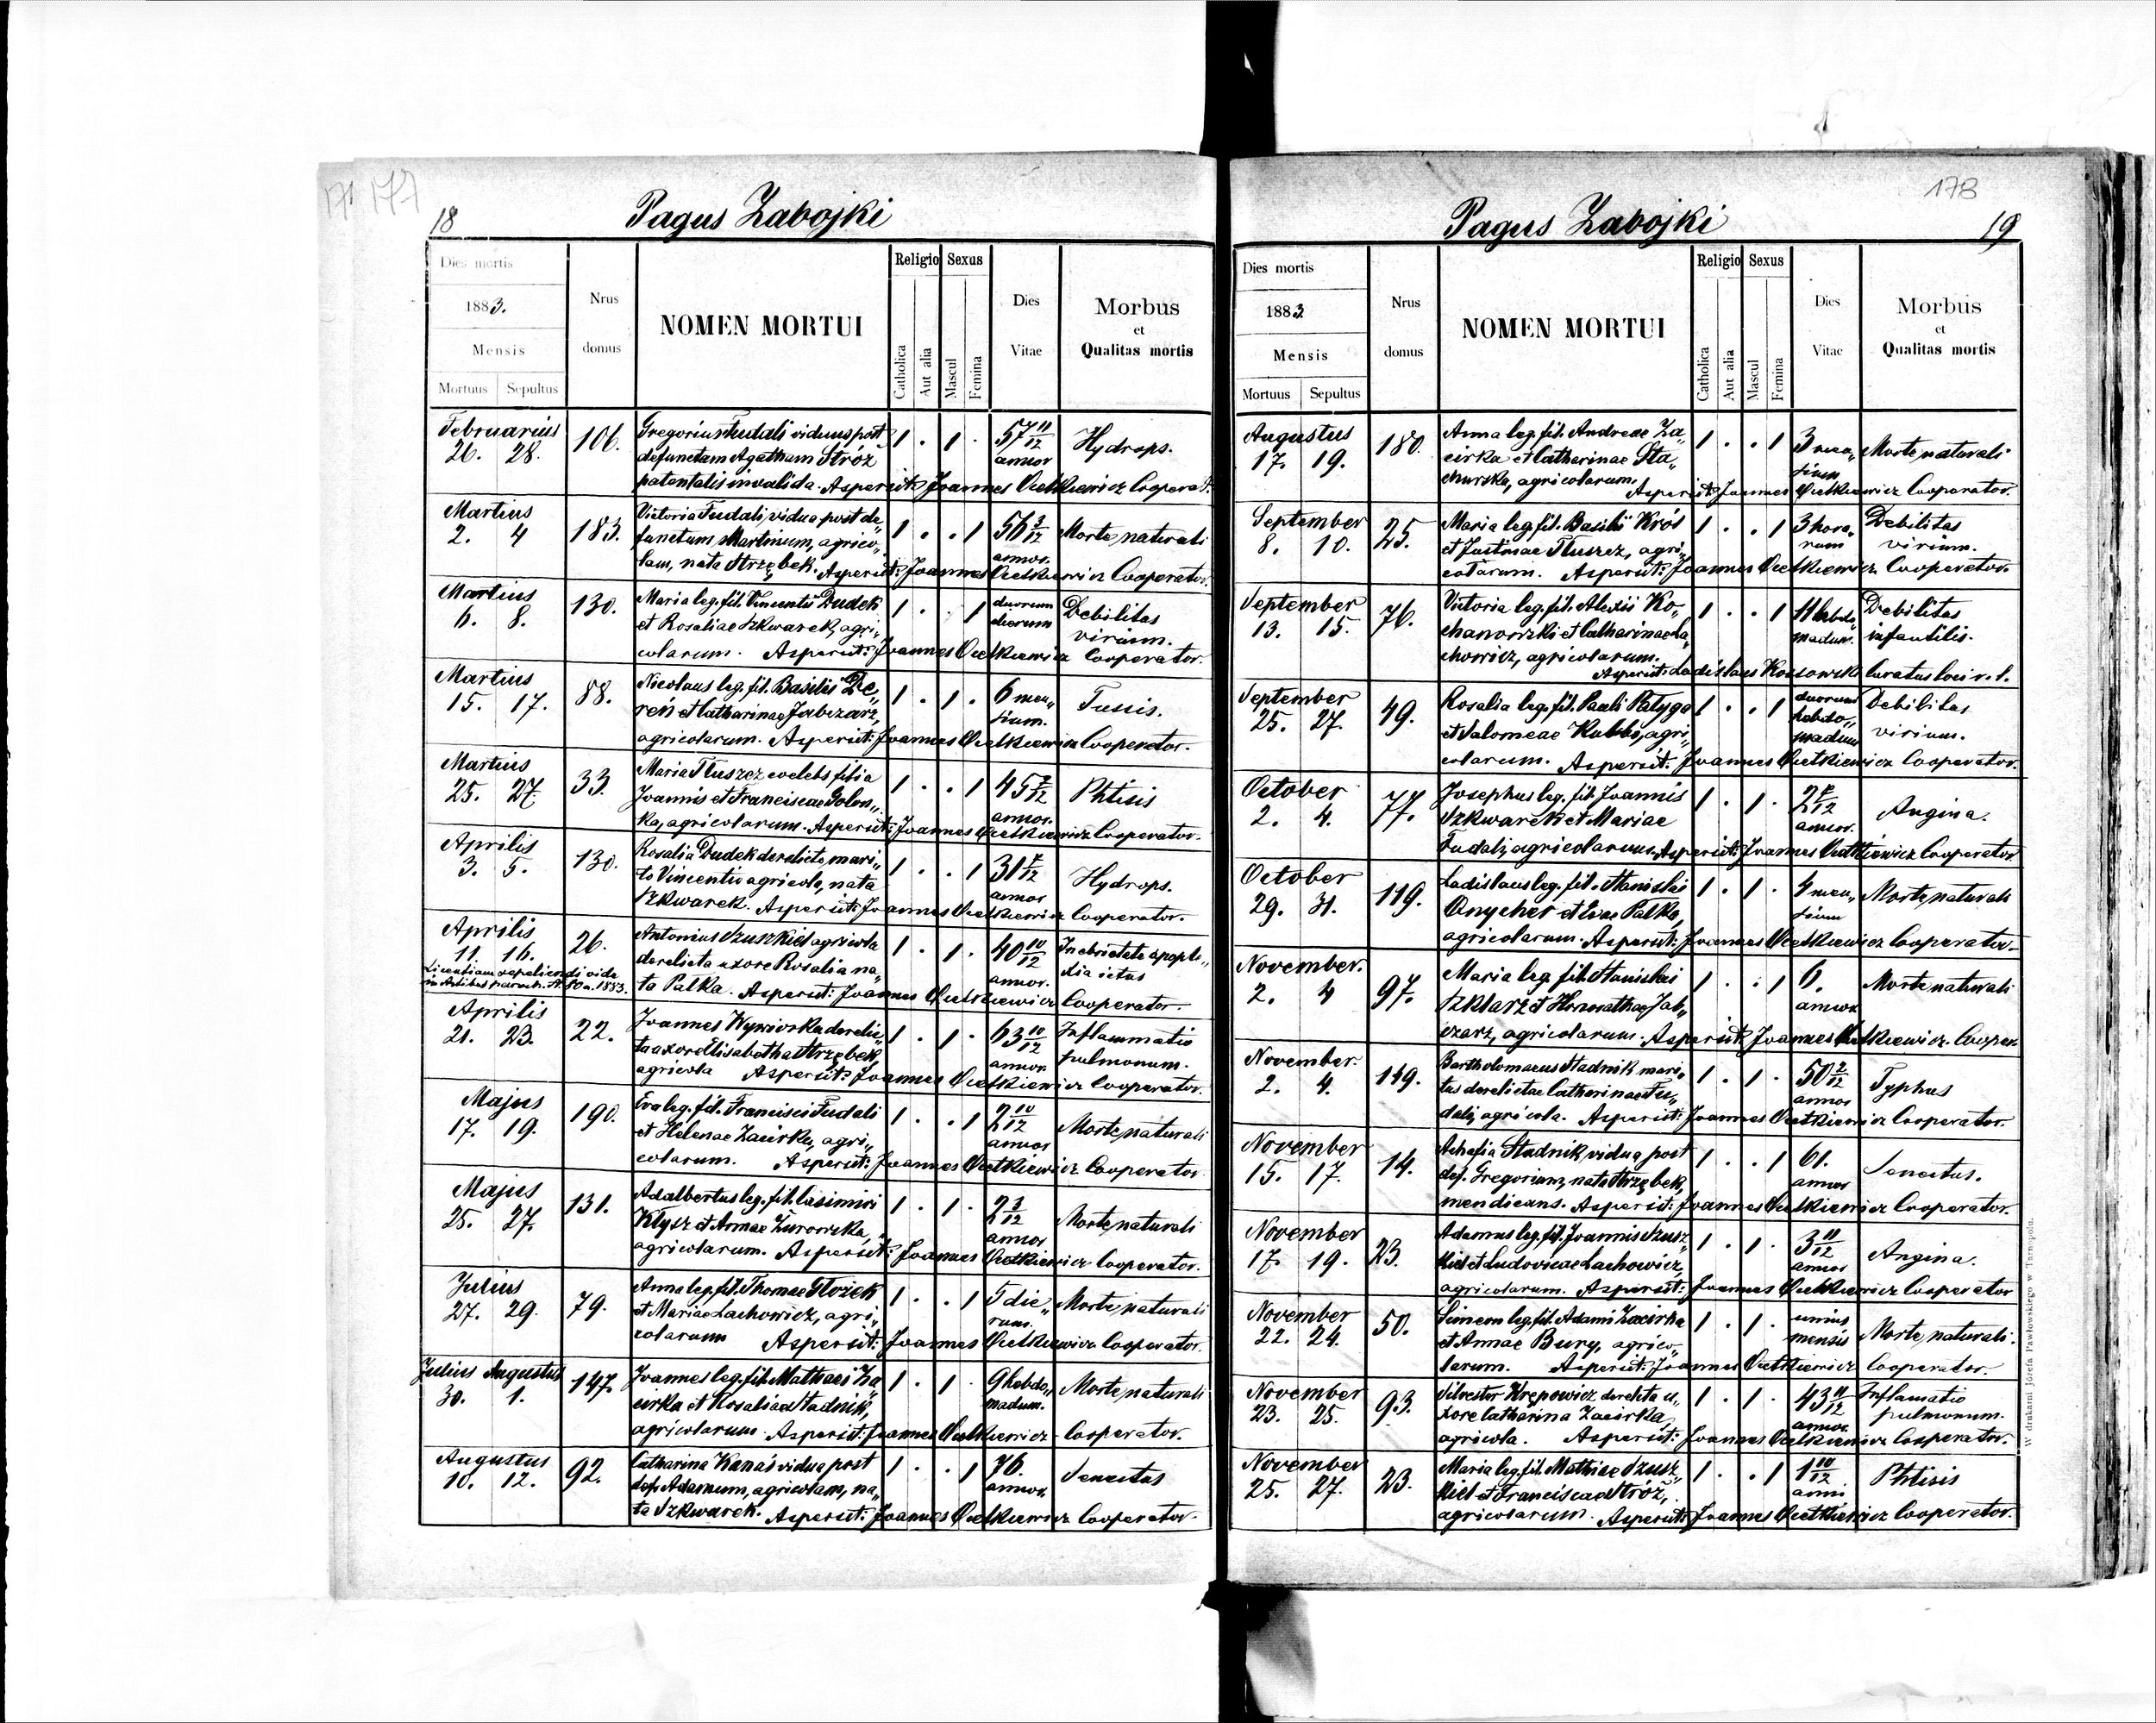 177
18
Pagus Zabojki
Dies mortis
1883.
Mensis
Mortuus Sepultus
Nrus
domus
NOMEN MORTUI
Religio Sexus
Catholica
Aut alia
Mascul
Femina
Dies
Vitae
Morbus
et
Qualitas mortis
Februarius
26. 28. 106. Gregorius Fudali viduus post 1 . 1 . 57 11/12 Hydrops.
defunctam Agatham Stróż annor
patentalis invalida. Aspersit: Joannes Cooperat.
Martius
2. 4 183. Victoria Fudali vidua post de„ 1 . . 1 56 3/12 Morte naturali
functum Martinum, agrico„ annor.
lam, nata Strzębek. Aspersit: Joannes Cooperator.
Martius
6. 8. 130. Maria leg. fil. Vincentii Dudek 1 . . 1 duorum Debilitas
et Rosaliae Szkwarek, agri„ dierum virium.
colarum. Aspersit: Joannes Cooperator.
Martius
15. 17. 88. Nicolaus leg. fil. Basilii De„ 1 . 1 . 6 men„ Tussis.
reń et Catharinae Jabczarz, sium.
agricolarum. Aspersit: Joannes Cooperator.
Martius
25. 27. 33. Maria Tłuszcz coelebs filia 1 . . 1 45 Phtisis
Joannis et Franciscae Golon„ annor.
ka, agricolarum. Aspersit: Joannes Cooperator.
Aprilis
3. 5. 130. Rosalia Dudek derelicto mari„ 1 . . 1 31 Hydrops.
to Vincentio agricola, nata annor
Szkwarek. Aspersit: Joannes Cooperator.
Aprilis
11. 16. 26. Antonius Szuszkiel agricola 1 . 1 . 40 10/12 In ebrietate apople„
derelicta uxore Rosalia na„ annor. xia ictus
Licentiam sepeliendi vide
in Actibus paroch. 1883. ta Pałka. Aspersit: Joannes Cooperator.
Aprilis
21. 23. 22. Joannes derelic„ 1 . 1 . 63 10/12 Inflammatio
ta uxore Elisabetha Strzębek, annor. pulmonum.
agricola Aspersit: Joannes Cooperator.
Majus
17. 19. 190. Eva leg. fil. Francisci Fudali 1 . . 1 2 10/12 Morte naturali
et Helenae Zacirka, agri„ annor
colarum. Aspersit: Joannes Cooperator.
Majus
25. 27. 131. Adalbertus leg. fil. Casimiri 1 . 1 . 2 3/12 Morte naturali
Kłysz et Annae Żurowska, annor
agricolarum. Aspersit: Joannes Cooperator.
Julius
27. 29. 79. Anna leg. fil. Thomae Stożek 1 . . 1 5 die„ Morte naturali
et Mariae Lachowicz, agri„ rum.
colarum Aspersit: Joannes Cooperator.
Julius Augustus
30. 1. 147. Joannes leg. fil. Mathaei Za„ 1 . 1 . 9 hebdo„ Morte naturali
cirka et Rosaliae Stadnik, madum.
agricolarum. Aspersit: Joannes Cooperator.
Augustus
10. 12. 92. Catharina Kanaś vidua post 1 . . 1 76. Senectus
def. Adamum, agricolam, na„ annor.
ta Szkwarek. Aspersit: Joannes Cooperator.
178
Pagus Zabojki
19
Dies mortis
1883
Mensis
Mortuus Sepultus
Nrus
domus
NOMEN MORTUI
Religio Sexus
Catholica
Aut alia
Mascul
Femina
Dies
Vitae
Morbus
et
Qualitas mortis
Augustus
17. 19. 180. Anna leg. fil. Andreae Za„ 1 . . 1 3 men„ Morte naturali
cirka et Catharinae Sta„ sium
churska, agricolarum. Aspersit: Joannes Cooperator.
September
8. 10. 25. Maria leg. fil. Basilii Król 1 . . 1 3 hora„ Debilitas
et Justinae Tłuszcz, agri„ rum virium.
colarum. Aspersit: Joannes Cooperator.
September
13. 15. 76. Victoria leg. fil. Alexii Ko„ 1 . . 1 11 hebdo„ Debilitas
chanowski et Catharinae La„ madum. infantilis.
chowicz, agricolarum.
Aspersit: Ladislaus Kossowski Curatus loci r. l.
September
25. 27. 49. Rosalia leg. fil. Pauli Patyga 1 . . 1 duorum Debilitas
et Salomeae agri„ hebdo„ virium.
madum
colarum. Aspersit: Joannes Cooperator.
October
2. 4. 77. Josephus leg. fil. Joannis 1 . 1 . 2 Angina.
Szkwarek et Mariae annor.
Fudali, agricolarum. Aspersit: Joannes Cooperator
October
29. 31. 119. Ladislaus leg. fil. Stanislai 1 . 1 . 4 men„ Morte naturali
et Evae Pałka, sium
agricolarum. Aspersit: Joannes Cooperator.
November.
2. 4 97. Maria leg. fil. Stanislai 1 . . 1 6. Morte naturali
Szklarz et Jab„ annor
czarz, agricolarum. Aspersit: Joannes Cooper.
November.
2. 4. 149. Bartholomaeus Stadnik mari„ 1 . 1 . 50 2/12 Typhus
tus derelictae Catharinae Fu„ annor
dali, agricola. Aspersit: Joannes Cooperator.
November
15. 17. 14. Stadnik vidua post 1 . . 1 61. Senectus.
def. Gregorium, nata Strzębek, annor
mendicans. Aspersit: Joannes Cooperator.
November
17. 19. 23. Adamus leg. fil. Joannis Szusz„ 1 . 1 . 3 11/12 Angina.
kiel et Ludovicae Lachowicz, annor
agricolarum. Aspersit: Joannes Cooperator
November
22. 24. 50. Simeon leg. fil. Adami Zacirka 1 . 1 . unius Morte naturali.
et Annae Bury, agrico„ mensis
larum. Aspersit: Joannes Cooperator.
November
23. 25. 93. Silvester Krępowicz derelicta u„ 1 . 1 . 43 11/12 Inflamatio
xore Catharina Zacirka, annor. pulmonum.
agricola. Aspersit: Joannes Cooperator.
November
25. 27. 23. Maria leg. fil. Mathiae Szusz„ 1 . . 1 1 10/12 Phtisis
kiel et Franciscae Stróż, anni
agricolarum. Aspersit: Joannes Cooperator.
W drukarni Józefa Pawłowskiego w Tarnopolu.